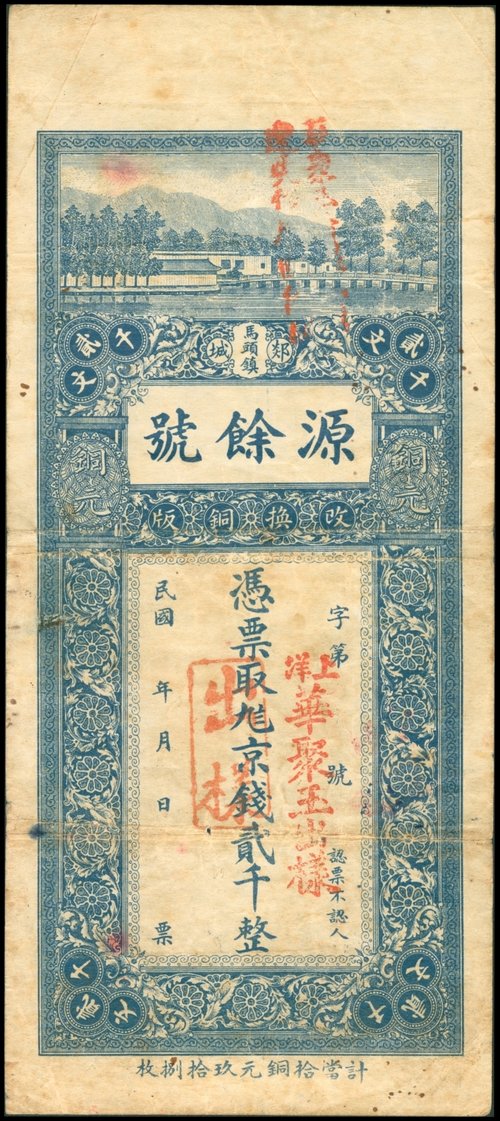 貳千文
貳千文
郯
馬頭鎮
城
源餘號
銅元
銅元
改換銅版
字第 號
認票不認人
憑票取 京錢貳千整
民國 年 月 日 票
上洋
華聚玉出樣
出樣
貳千文
貳千文
計當拾銅元玖拾捌枚